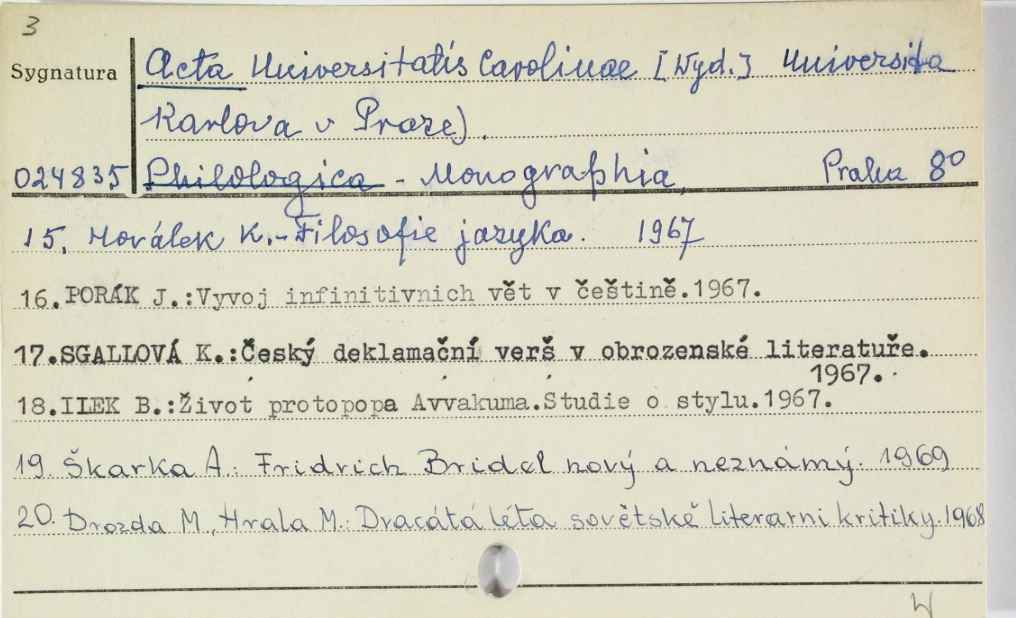 3
Sygnatura
Acta Universitatis Carolinae [Wyd.] Universita
Karlova v Praze).
024835 Philologica - Monographia, Praha 8º
15. Horálek K.-Filosofie jazyka. 1967
16.PORÁK J.:Vyvoj infinitivnich vět v češtině.1967.
17.SGALLOVÁ K.:Český deklamační verš v obrozenské literatuře.
1967.
18.ILEK B.:Život protopopa Avvakuma.Studie o stylu.1967.
19. Škarka A.: Fridrich Bridel nový a neznámý. 1969
20. Drozda M., Hrala M.: Dvacátá léta sovětské literarni kritiky.1968
W